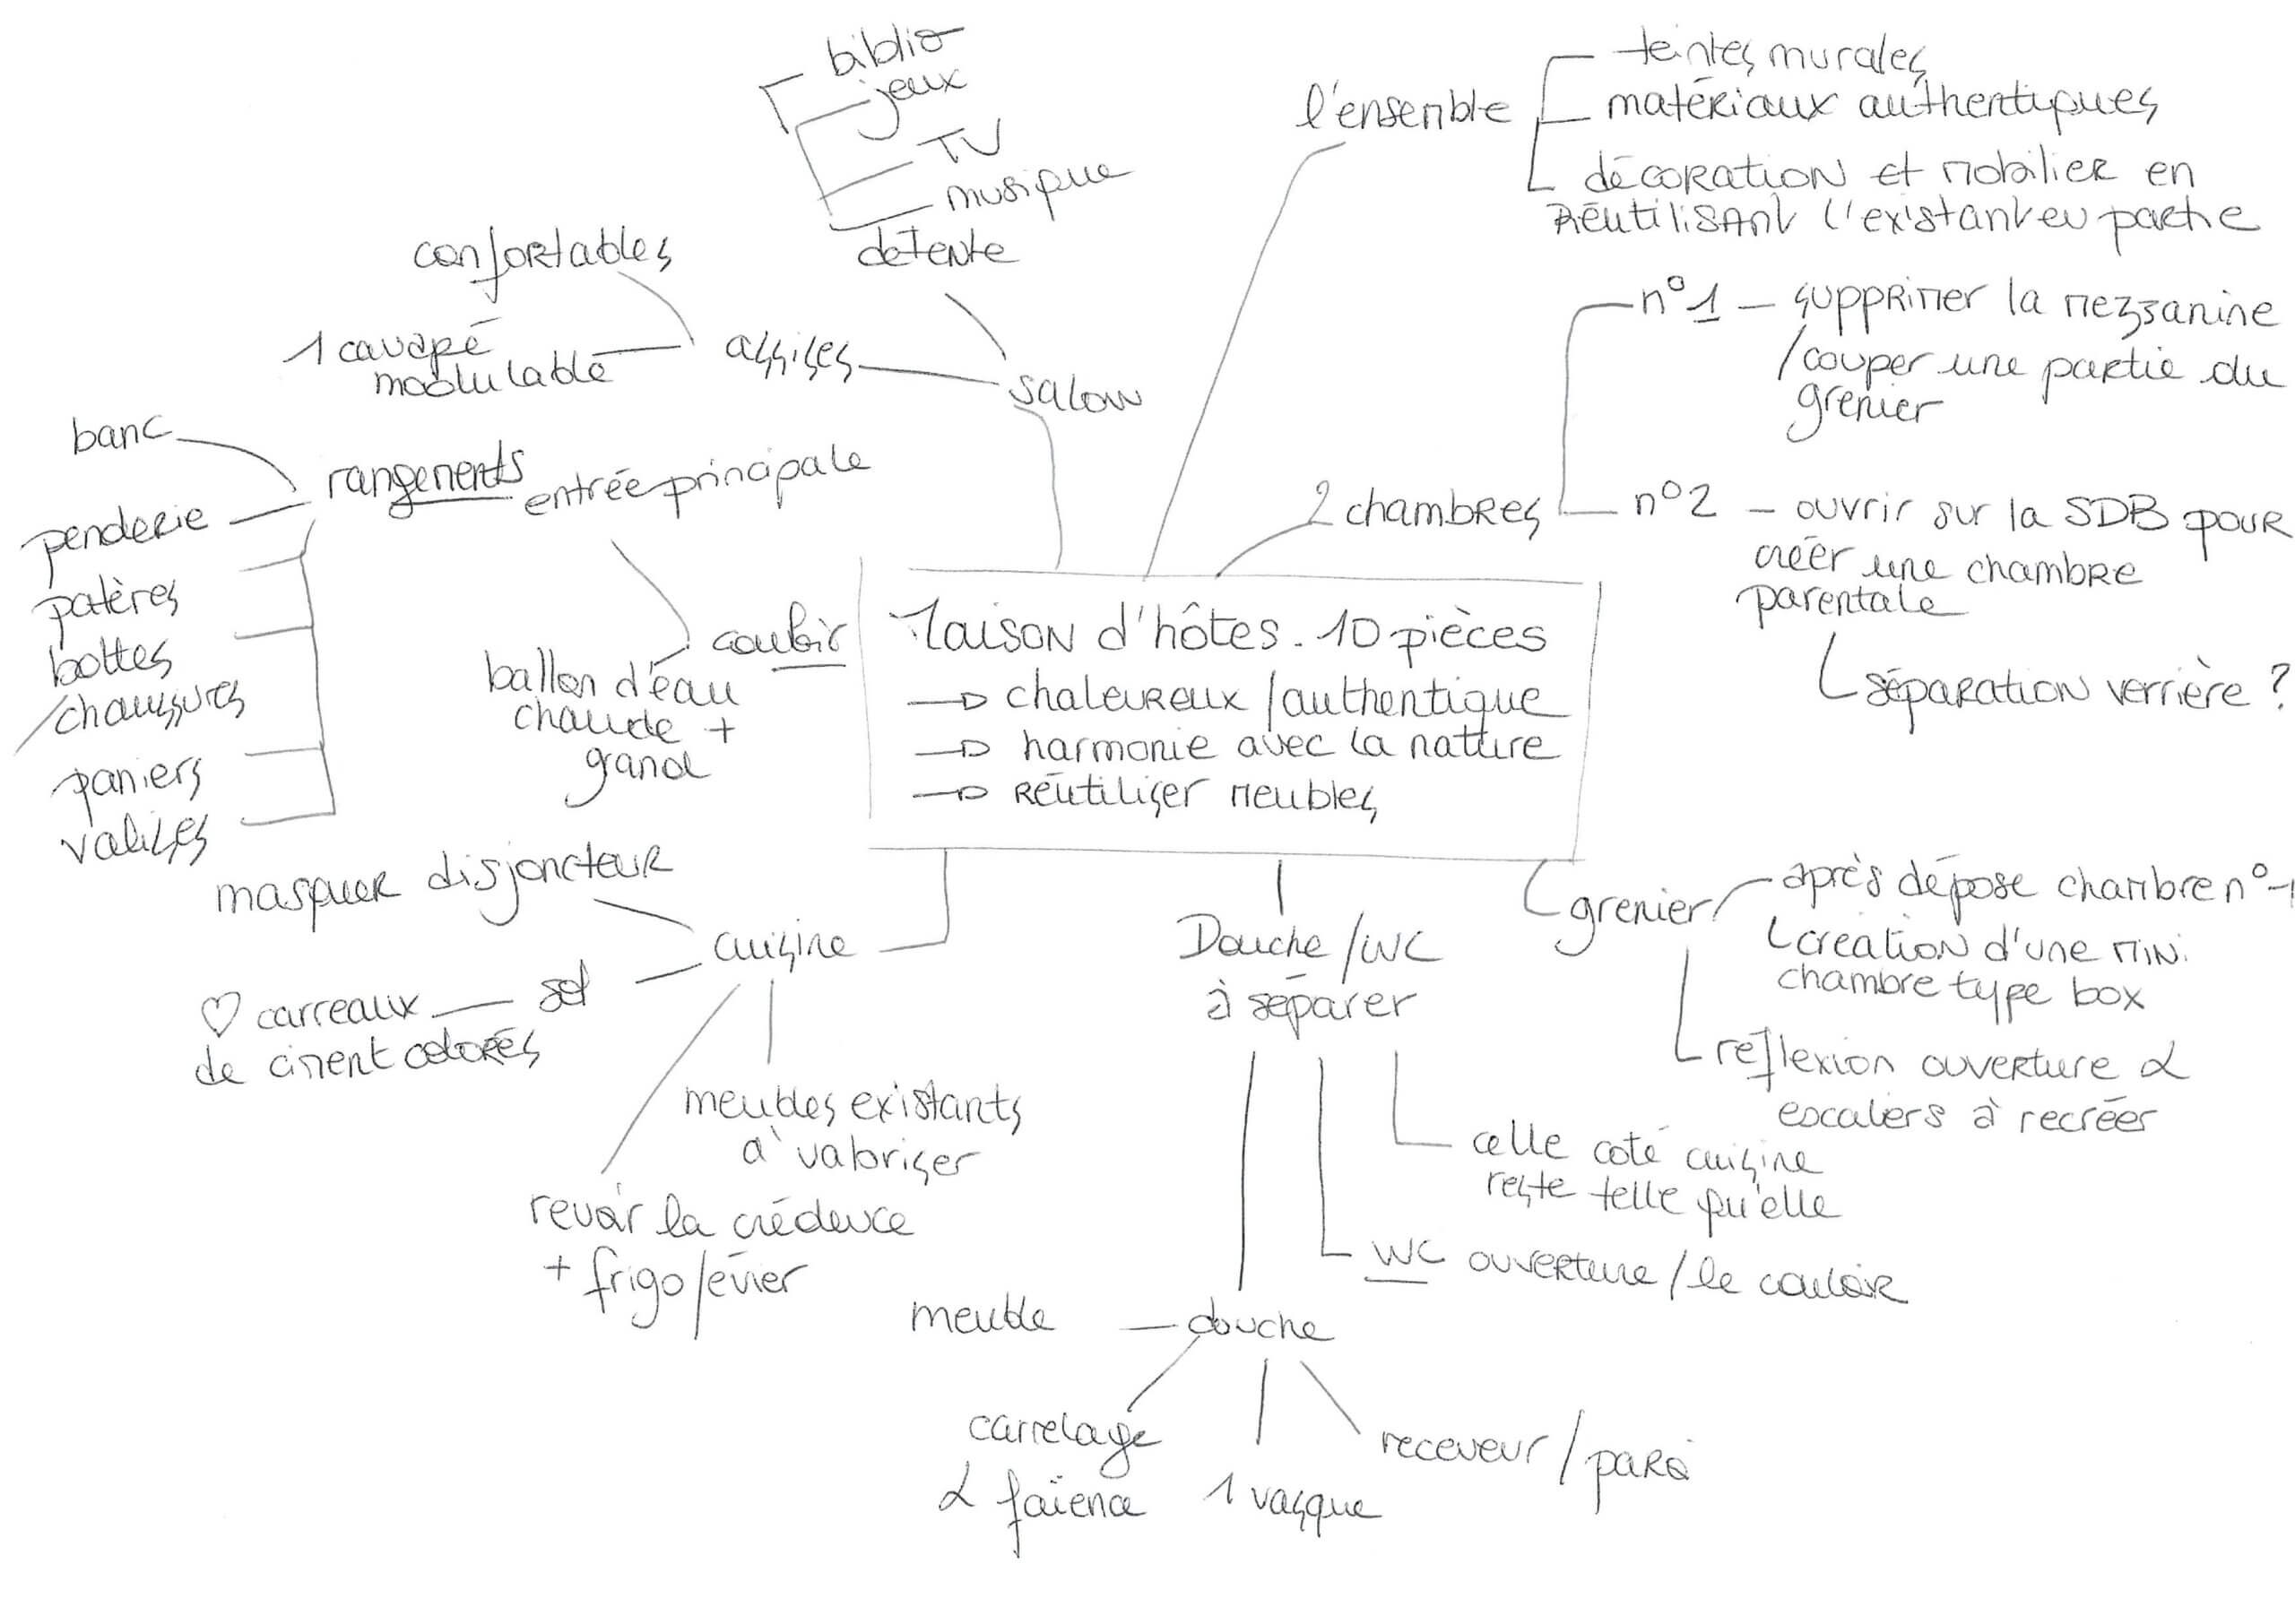 biblio
jeux
TV
musique
détente
confortables
1 canapé
modulable
assises
salon
l'ensemble
teintes murales
matériaux authentiques
décoration et mobilier en
réutilisant l'existant en partie
2 chambres
n°1 - supprimer la mezzanine
/couper une partie du
grenier
n°2 - ouvrir sur la SDB pour
créer une chambre
parentale
séparation verrière ?
banc
rangements
penderie
patères
bottes
/chaussures
paniers
valises
entrée principale
couloir
ballon d'eau
chaude +
grand
Maison d'hôtes. 10 pièces
→ chaleureux / authentique
→ harmonie avec la nature
→ réutiliser meubles
masquer disjoncteur
cuisine
sol
♡ carreaux
de ciment colorés
meubles existants
à valoriser
revoir la crédence
+ frigo/évier
Douche/WC
à séparer
celle coté cuisine
reste telle qu'elle
WC ouverture / le couloir
douche
meuble
carrelage
& faïence
1 vasque
receveur / paroi
grenier
après dépose chambre n°1
création d'une mini
chambre type box
réflexion ouverture &
escaliers à recréer